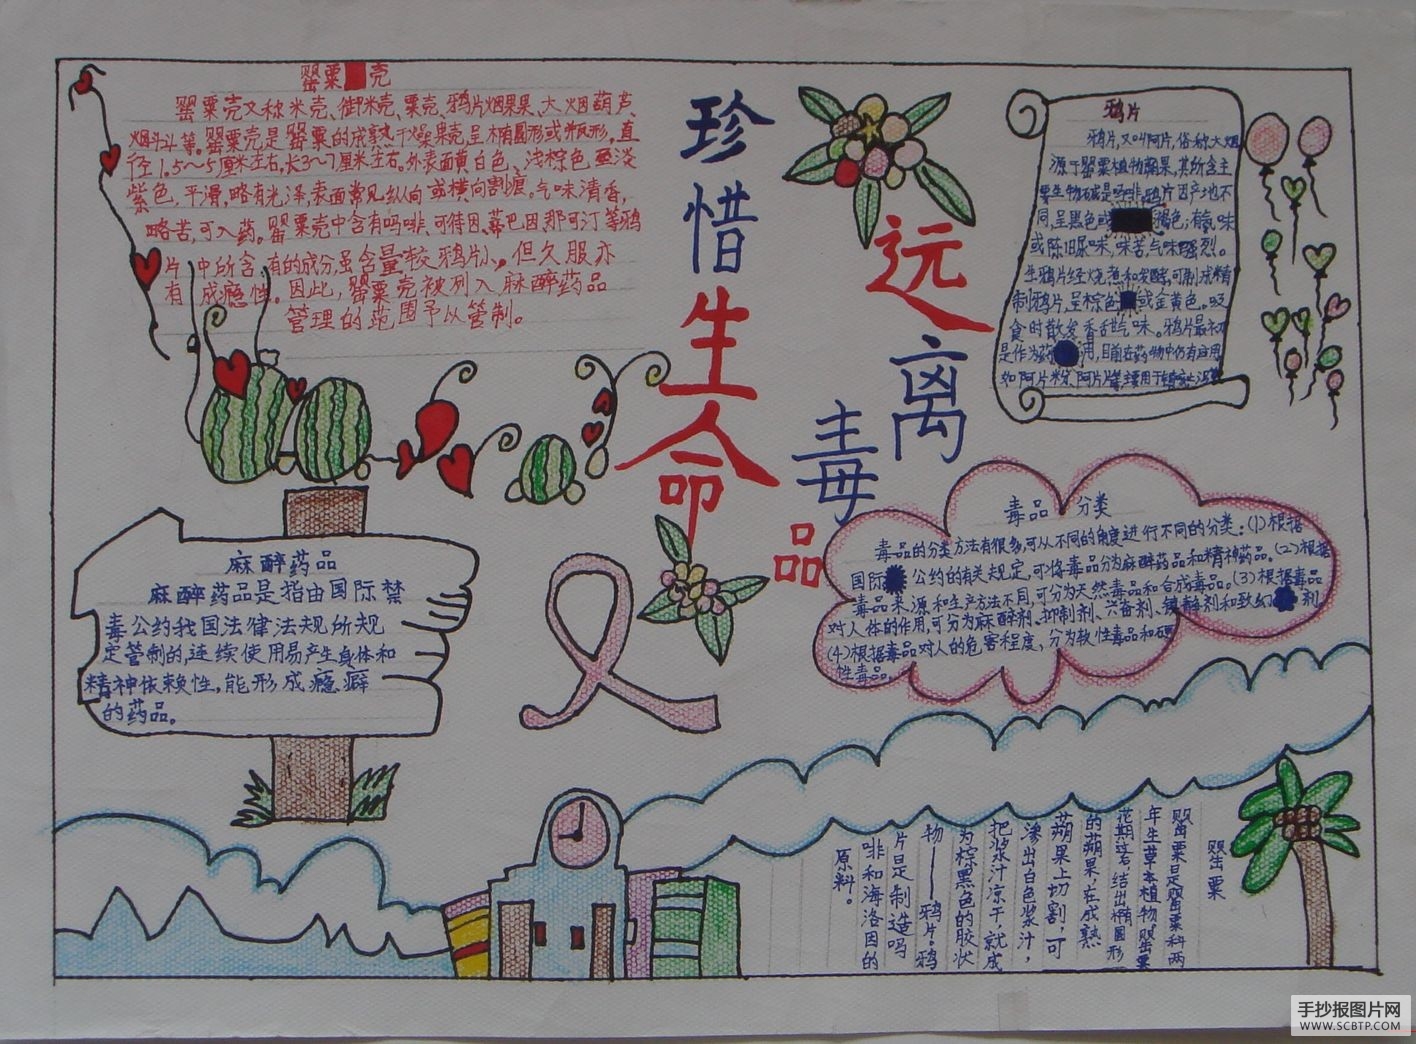 罂粟壳
罂粟壳又称米壳、御米壳、粟壳、鸦片烟果果、大烟葫芦、
烟斗等。罂粟壳是罂粟的成熟干燥果壳,呈椭圆形或瓶形,直
径1.5～5厘米左右,长3～7厘米左右。外表面黄白色、浅棕色至淡
紫色,平滑,略有光泽,表面常见纵向或横向割痕。气味清香,
略苦,可入药。罂粟壳中含有吗啡、可待因、蒂巴因、那可汀等鸦
片中所含有的成分,虽含量较鸦片小,但久服亦
有成瘾性。因此,罂粟壳被列入麻醉药品
管理的范围予以管制。
珍惜生命
远离
毒品
鸦片
鸦片,又叫阿片,俗称大烟
源于罂粟植物蒴果,其所含主
要生物碱是吗啡。鸦片因产地不
同,呈黑色或褐色;有氨味
或陈旧尿味,味苦,气味强烈。
生鸦片经烧煮和发酵,可制成精
制鸦片,呈棕色或金黄色。吸
食时散发香甜气味。鸦片最初
是作为药用,目前在药物中仍有应用
如阿片粉、阿片片等,主要用于
麻醉药品
麻醉药品是指由国际禁
毒公约我国法律法规所规
定管制的,连续使用易产生身体和
精神依赖性,能形成瘾癖
的药品。
毒品分类
毒品的分类方法有很多,可从不同的角度进行不同的分类:(1)根据
国际公约的有关规定,可将毒品分为麻醉药品和精神药品。(2)根据
毒品来源和生产方法不同,可分为天然毒品和合成毒品。(3)根据毒品
对人体的作用,可分为麻醉剂、抑制剂、兴奋剂、镇静剂和致幻剂
(4)根据毒品对人的危害程度,分为软性毒品和硬
性毒品。
罂粟
罂粟是罂粟科两
年生草本植物,罂粟
花期过后,结出椭圆形
的蒴果,在成熟
蒴果上切割,可
渗出白色浆汁,
把浆汁凉干,就成
为棕黑色的胶状
物——鸦片。鸦
片是制造吗
啡和海洛因的
原料。
手抄报图片网
WWW.SCBTP.COM